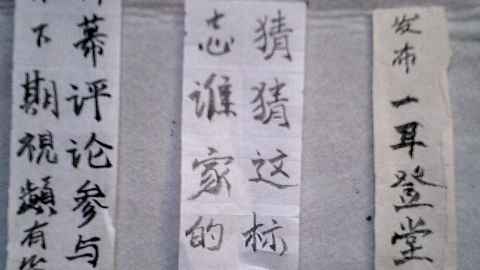 幕评论参与
下期視頻有
猜猜这标
志谁家的
发布一耳登堂